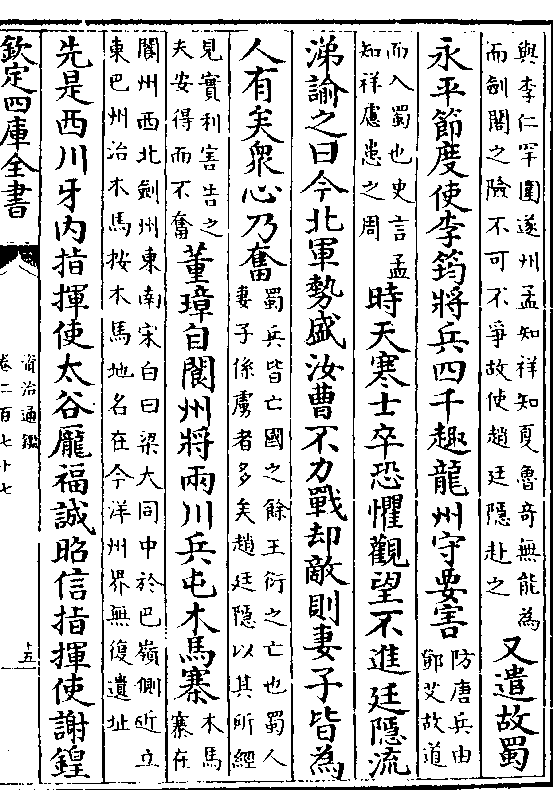 與李仁罕圍遂州孟知祥知夏魯奇無能為
而劍閣之險不可不爭故使趙廷隱赴之
又遣故蜀
永平節度使李筠將兵四千趣龍州守要害
防唐兵由
鄧艾故道
而入蜀也史言孟
知祥慮患之周
時天寒士卒恐懼觀望不進廷隱流
涕諭之曰今北軍勢盛汝曹不力戰却敵則妻子皆為
人有矣衆心乃奮
蜀兵皆亡國之餘王衍之亡也蜀人
妻子係虜者多矣趙廷隱以其所經
見實利害告之
夫安得而不奮
董璋自閬州將兩川兵屯木馬寨
木馬
寨在
閬州西北劍州東南宋白曰梁大同中於巴嶺側近立
東巴州治木馬按木馬地名在今洋州界無復遺址
先是西川牙内指揮使太谷龐福誠昭信指揮使謝鍠
欽定四庫全書
資治通鑑
卷二百七十七
十五